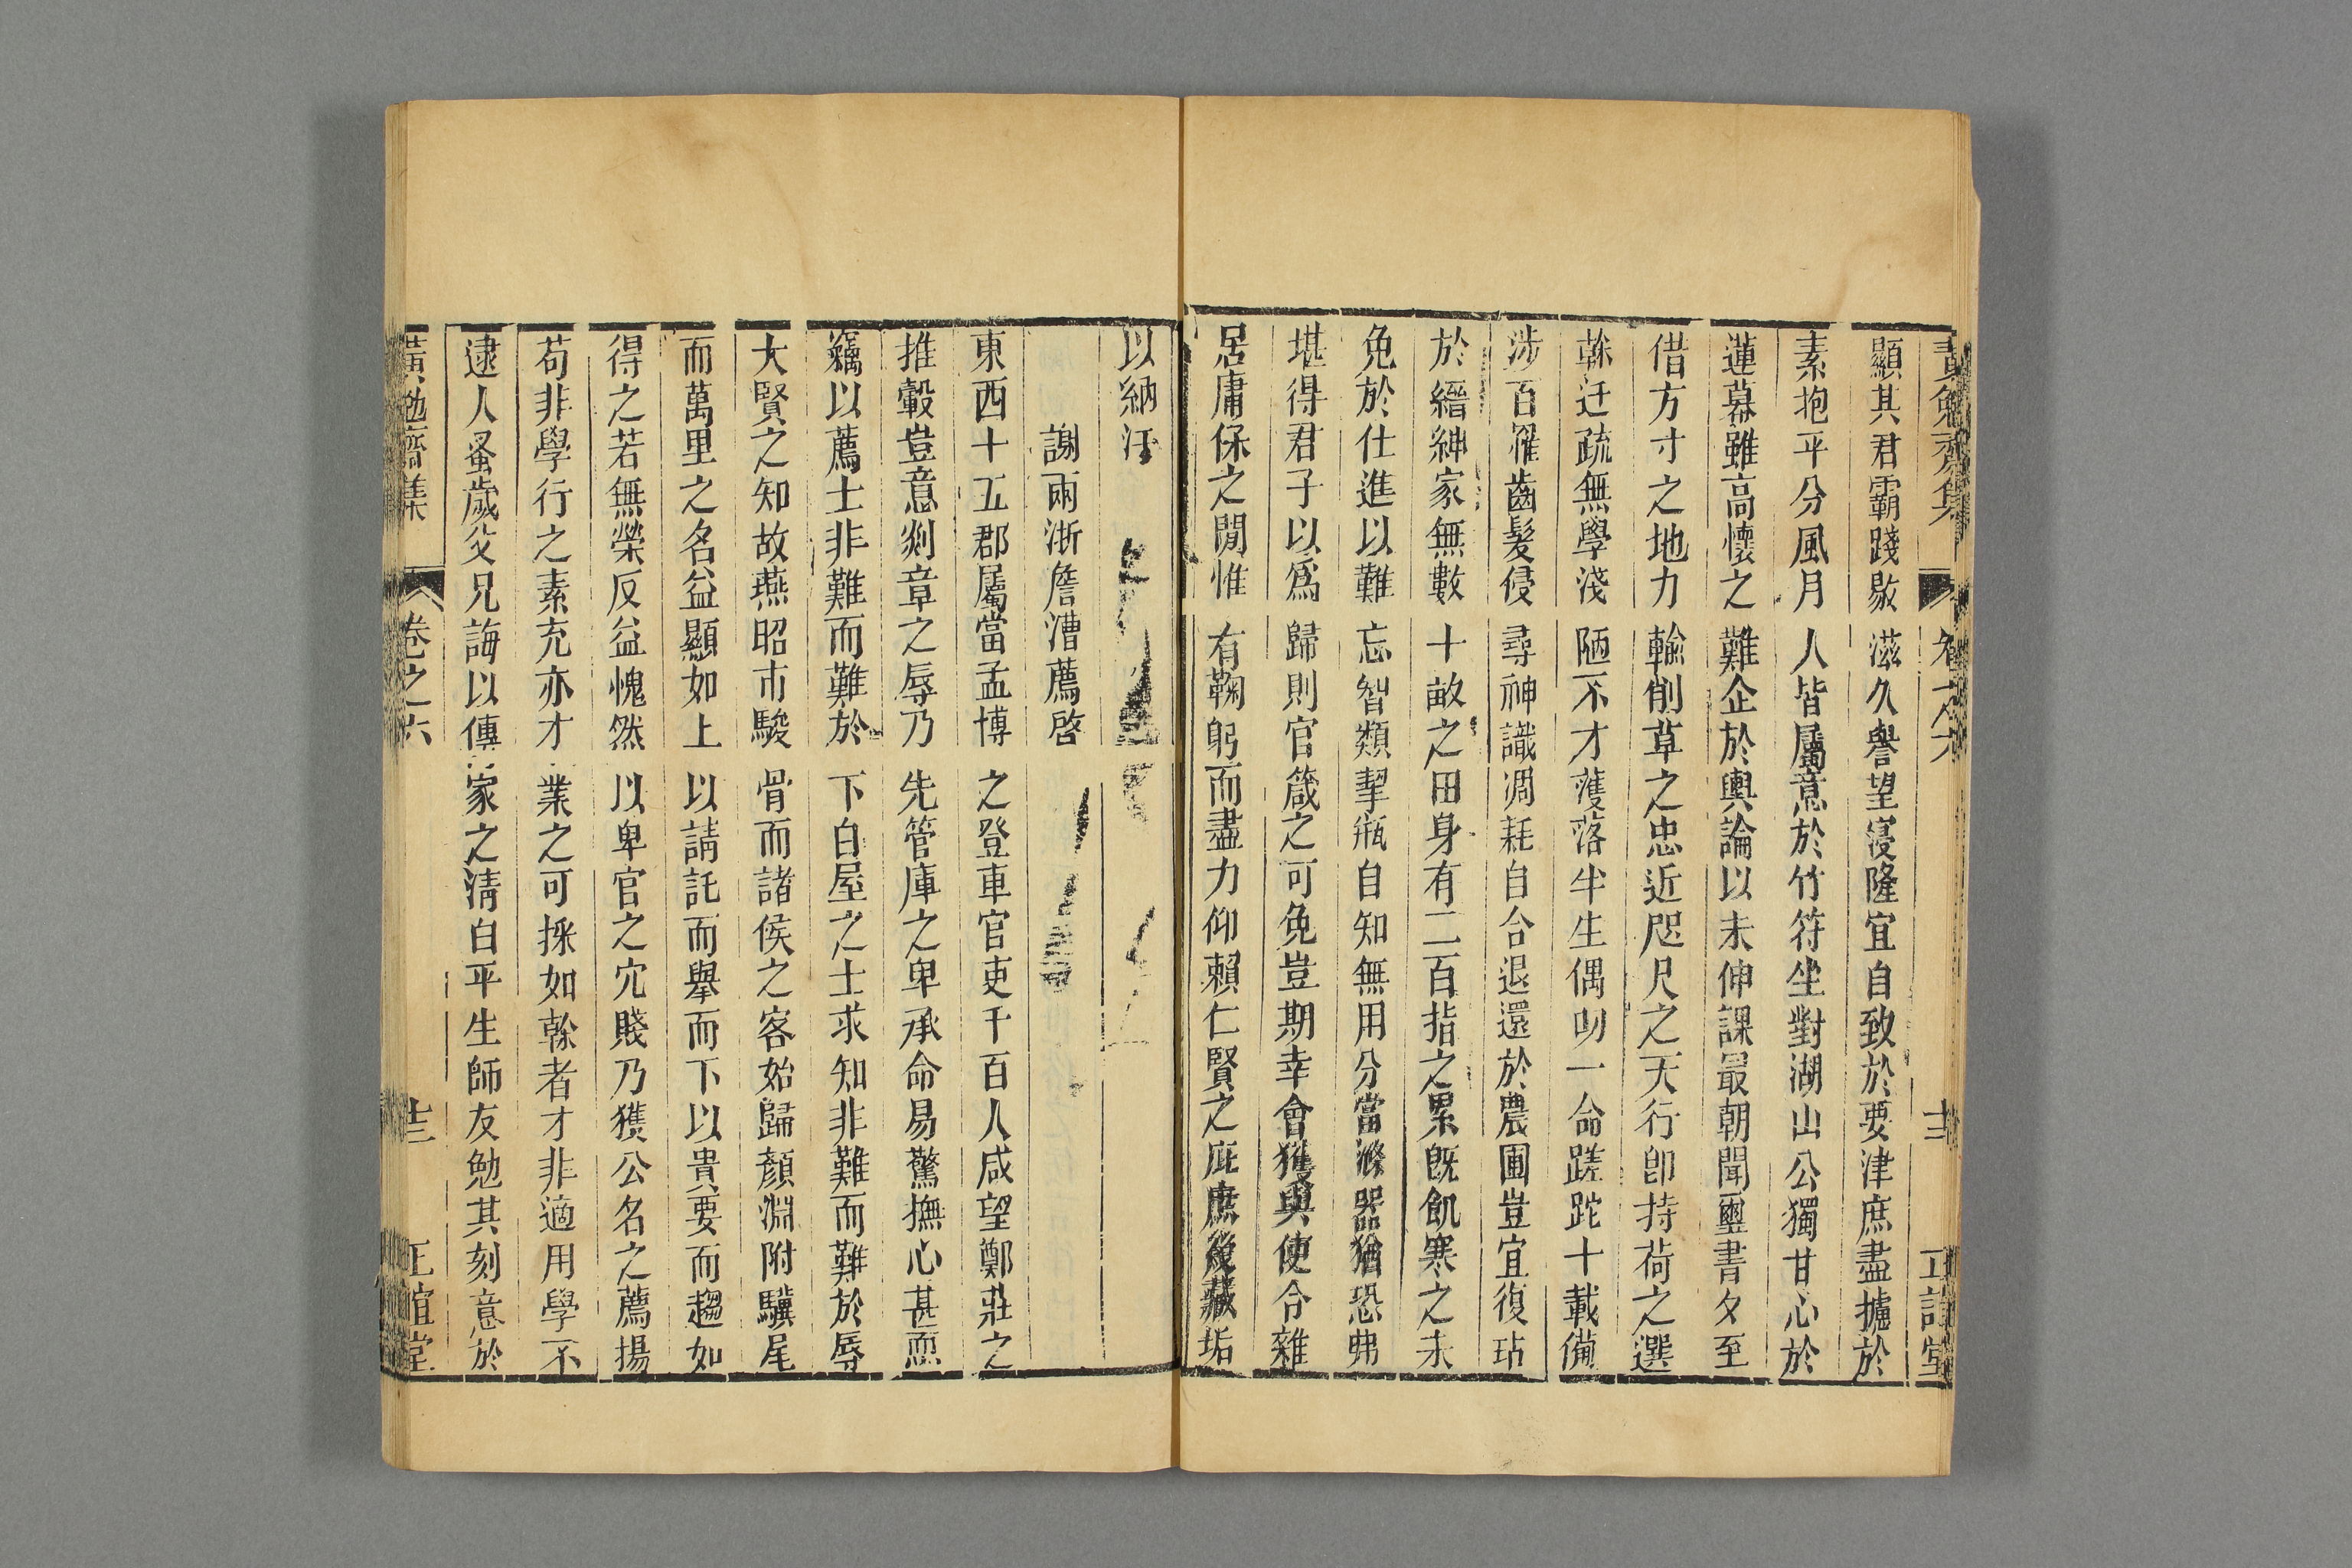 黃勉齋集 卷之六 十二 正誼堂
顯其君霸踐敭滋久譽望寖隆宜自致於要津庶盡攄於
素抱平分風月人皆屬意於竹符坐對湖山公獨甘心於
蓮幕雖高懷之難企於輿論以未伸課最朝聞璽書夕至
借方寸之地力輸削草之忠近咫尺之天行卽持荷之選
榦迂疏無學淺陋不才蒦落半生偶叨一命蹉跎十載備
涉百罹齒髮侵尋神識凋耗自合退還於農圃豈宜復玷
於縉紳家無數十畝之田身有二百指之累旣飢寒之未
免於仕進以難忘智類挈瓶自知無用分當滌器猶恐弗
堪得君子以爲歸則官箴之可免豈期幸會獲與使令雜
居庸保之閒惟有鞠躬而盡力仰賴仁賢之庇庶幾藏垢
以納汙
謝兩浙詹漕薦啓
東西十五郡屬當孟博之登車官吏千百人咸望鄭莊之
推轂豈意剡章之辱乃先管庫之卑承命易驚撫心甚恧
竊以薦士非難而難於下白屋之士求知非難而難於辱
大賢之知故燕昭市駿骨而諸侯之客始歸顏淵附驥尾
而萬里之名益顯如上以請託而舉而下以貴要而趨如
得之若無榮反益愧然以卑官之宂賤乃獲公名之薦揚
苟非學行之素充亦才業之可採如榦者才非適用學不
逮人蚤歲父兄誨以傳家之淸白平生師友勉其刻意於
黃勉齋集 卷之六 十三 正誼堂